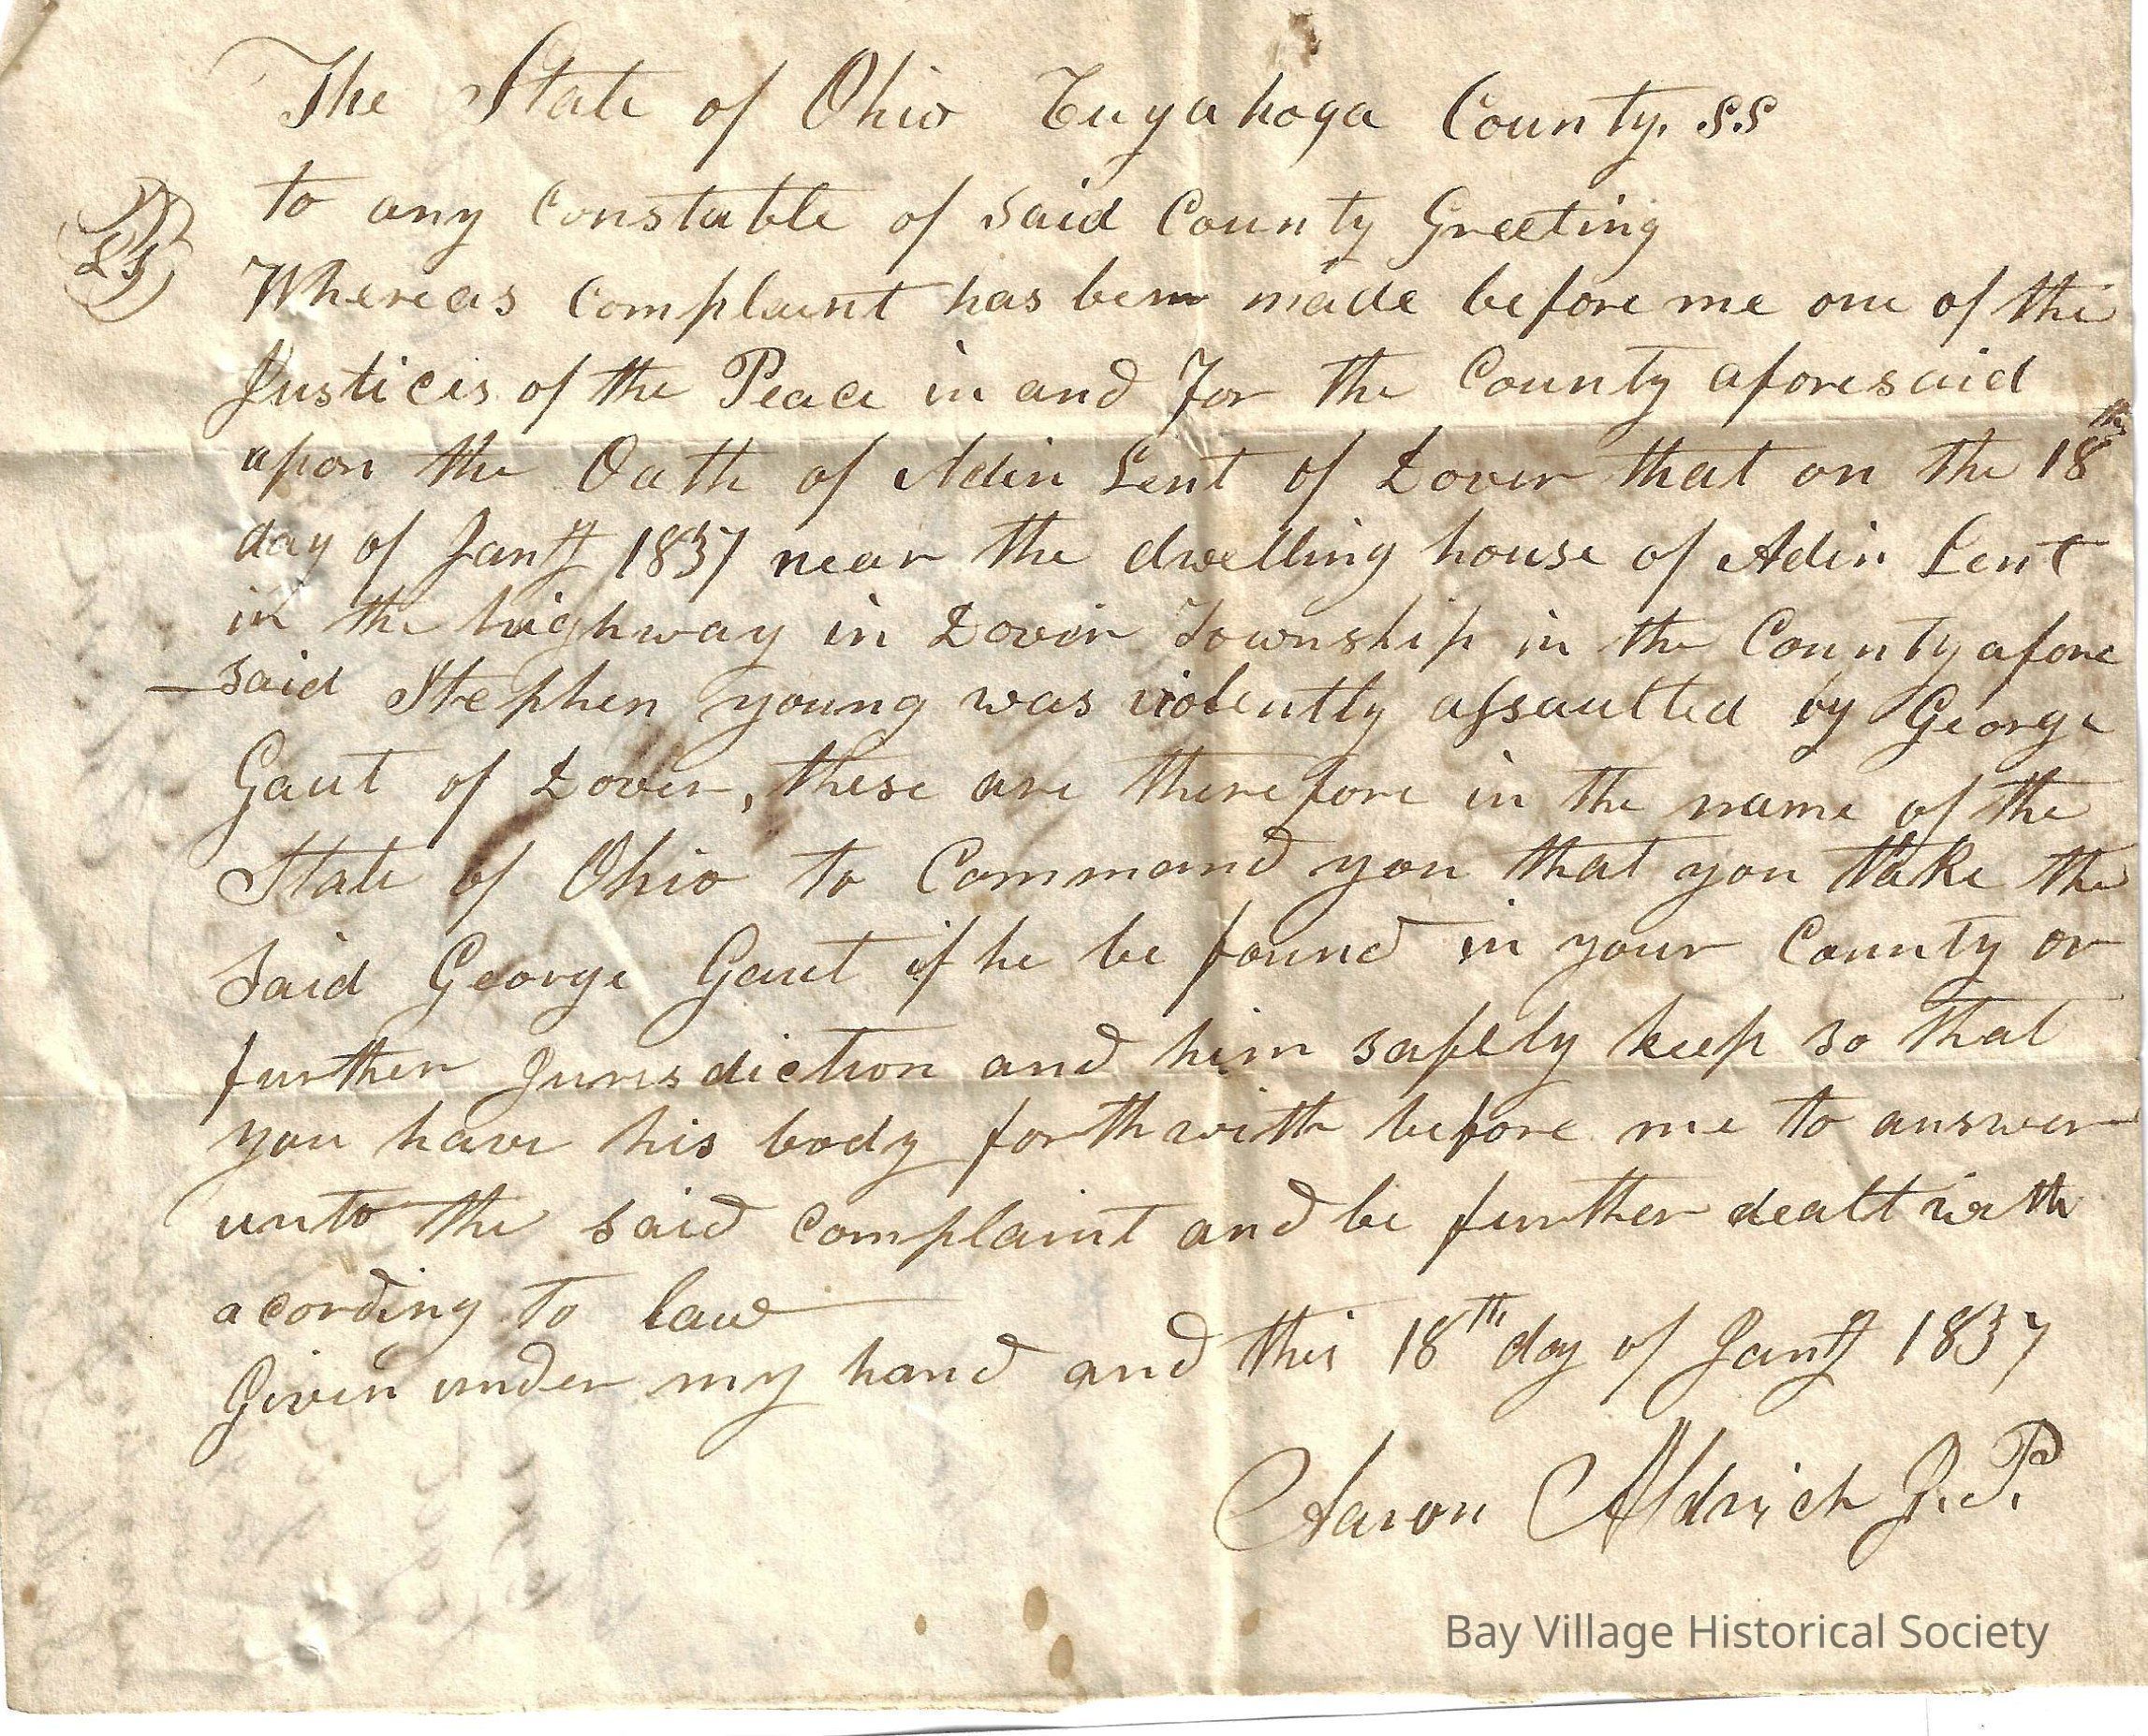 The State of Ohio Cuyahoga County. SS
to any Constable of said County Greeting
LS
Whereas Complaint has been made before me one of the
Justices of the Peace in and for the County aforesaid
upon the Oath of Adin Lent of Dover that on the 18th
day of Jany 1837 near the dwelling house of Adin Lent
in the highway in Dover Township in the County afore
-said Stephen young was violently assaulted by George
Gaut of Dover, these are therefore in the name of the
State of Ohio to Command you that you take the
said George Gaut if he be found in your County or
further Jurisdiction and him safely keep so that
you have his body forthwith before me to answer
unto the said complaint and be further dealt with
acording to law
Given under my hand and this 18th day of Jany 1837
Aaron Aldrich J.P.
Bay Village Historical Society